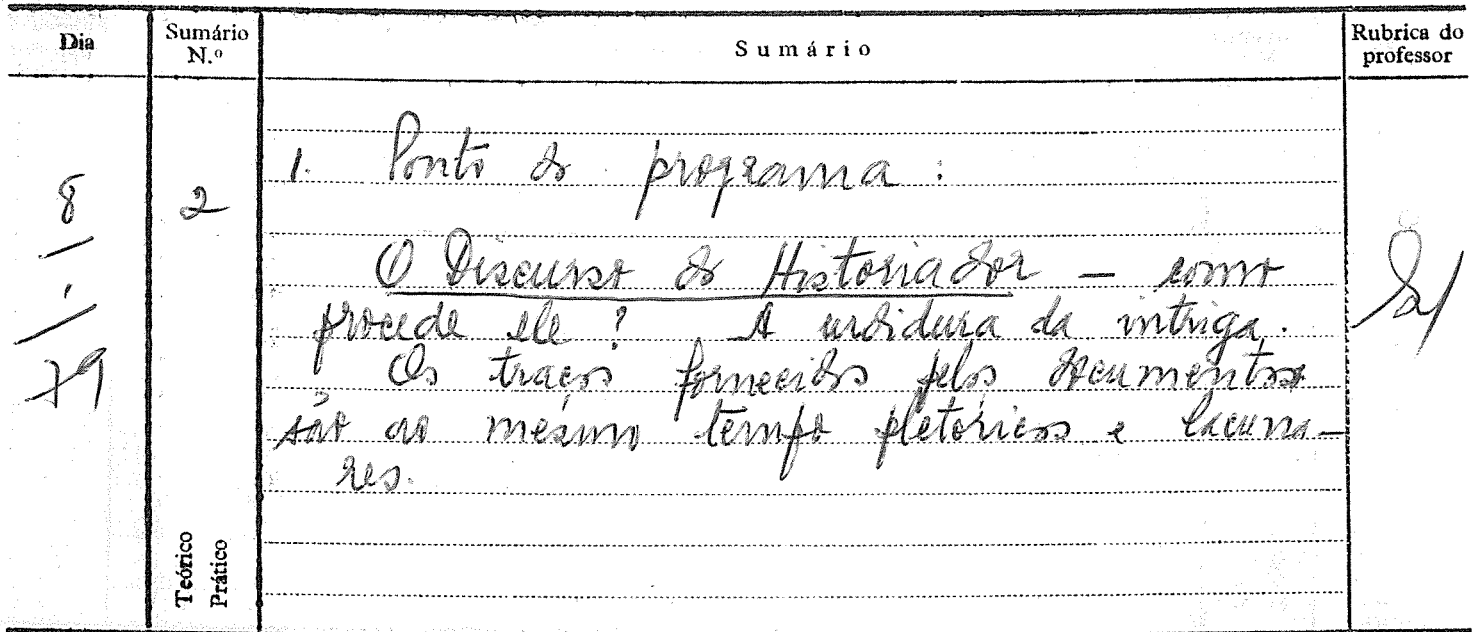 Dia
Sumário
N.º
Sumário
Rubrica do
professor
8
1
79
2
1. Ponto do programa :
O Discurso do Historiador – como
procede ele ? A urdidura da intriga.
Os traços fornecidos pelos documentos
são ao mesmo tempo pletóricos e lacuna-
res.
Teórico
Prático